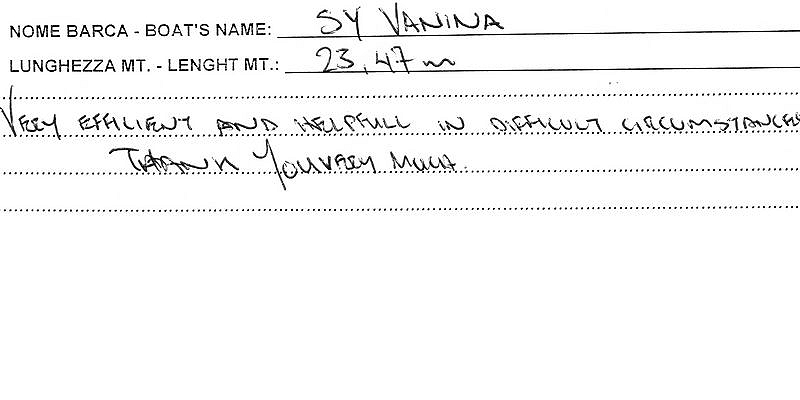 NOME BARCA - BOAT'S NAME: SY VANINA
LUNGHEZZA MT. - LENGHT MT.: 23,47 m
VERY EFFICIENT AND HELPFULL IN DIFFICULT CIRCUMSTANCES
THANK YOU VERY MUCH.